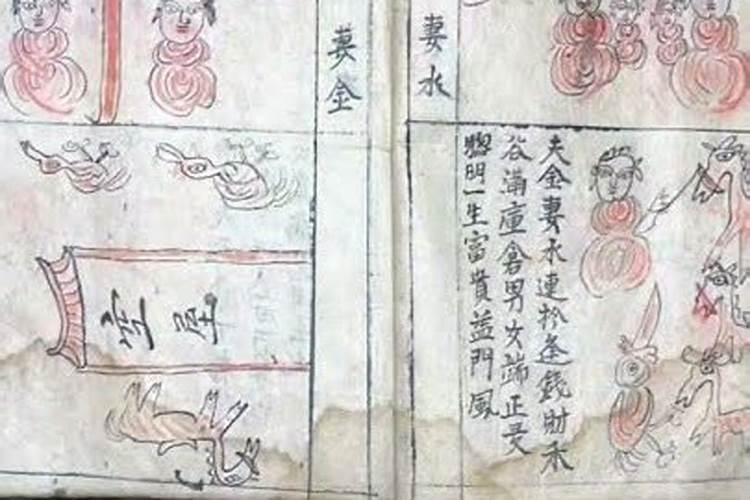 夫金妻水連於逢錢財禾
谷滿庫倉男女端正受
聰明一生富貴益門風
妻水
妻金
空屋